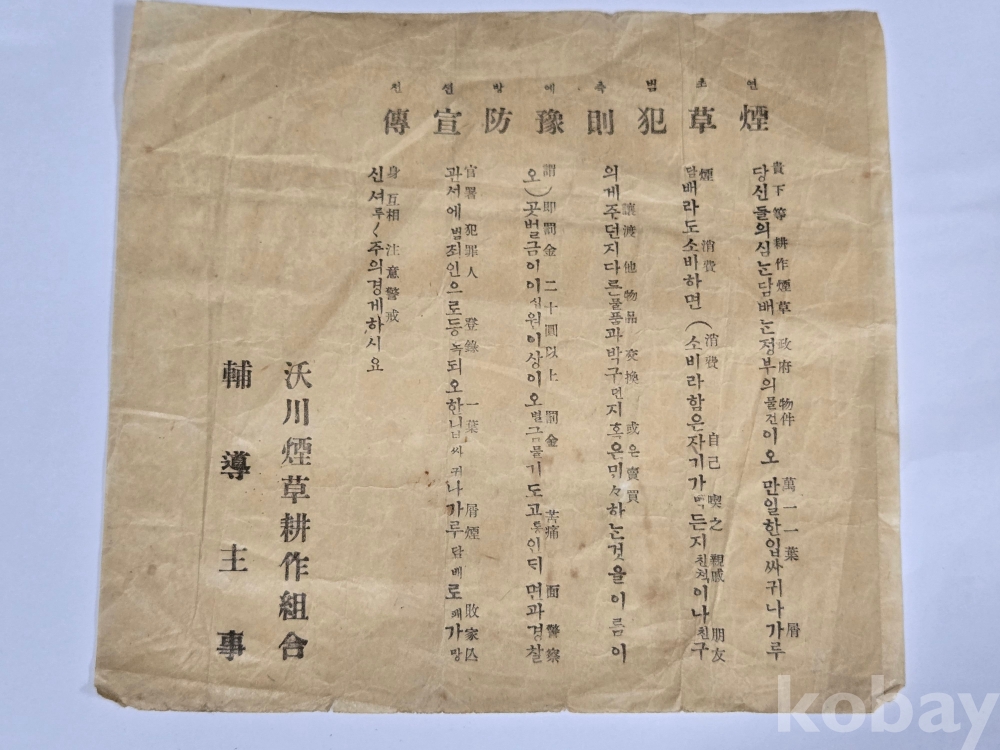 연초범측예방선전
煙草犯則豫防宣傳
貴下等 耕作煙草 政府 物件 萬一 一葉 屑
당신들의심은담배는정부의물건이오 만일한입싸귀나가루
煙 消費 消費 自己 喫之 親戚 朋友
담배라도소비하면(소비라함은자기가먹든지친척이나친구
讓渡 他物品 交換 或은賣買
의게주던지다른물품과박구던지혹은믹々하는것을이름이
謂 即罰金 二十圓以上 罰金 苦痛 面 警察
오)곳벌금이이십원이상이오벌금물기도고통인되면과경찰
官署 犯罪人 登錄 一葉 屑煙 敗家亡
관서에범죄인으로등녹되오한닙싸귀나가루담배로패가망
身 互相 注意警戒
신셔루〱주의경계하시요
沃川煙草耕作組合
輔導主事
kobay